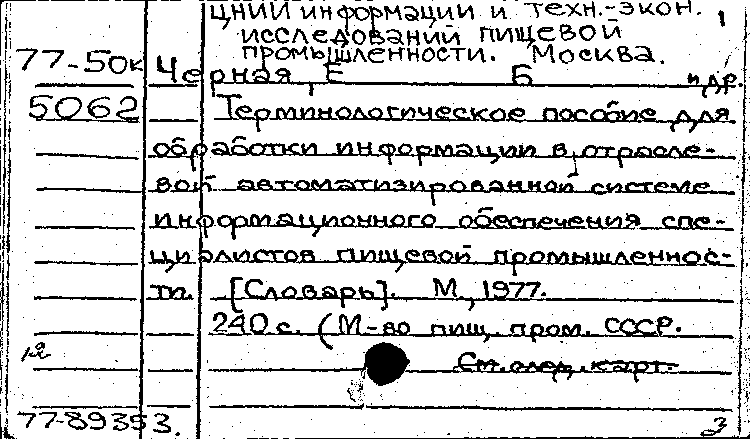 ЦНИИ информации и техн.-экон. 1
исследований пищевой
промышленности. Москва.
77-50к Черная, Е Б и др.
5062 Терминологическое пособие для
обработки информации в отрасле-
вой автоматизированной системе
информационного обеспечения спе-
циалистов пищевой промышленнос-
ти. [Словарь]. М., 1977.
240 с. (М-во пищ. пром. СССР.
См. след. карт.
77-89353. 3